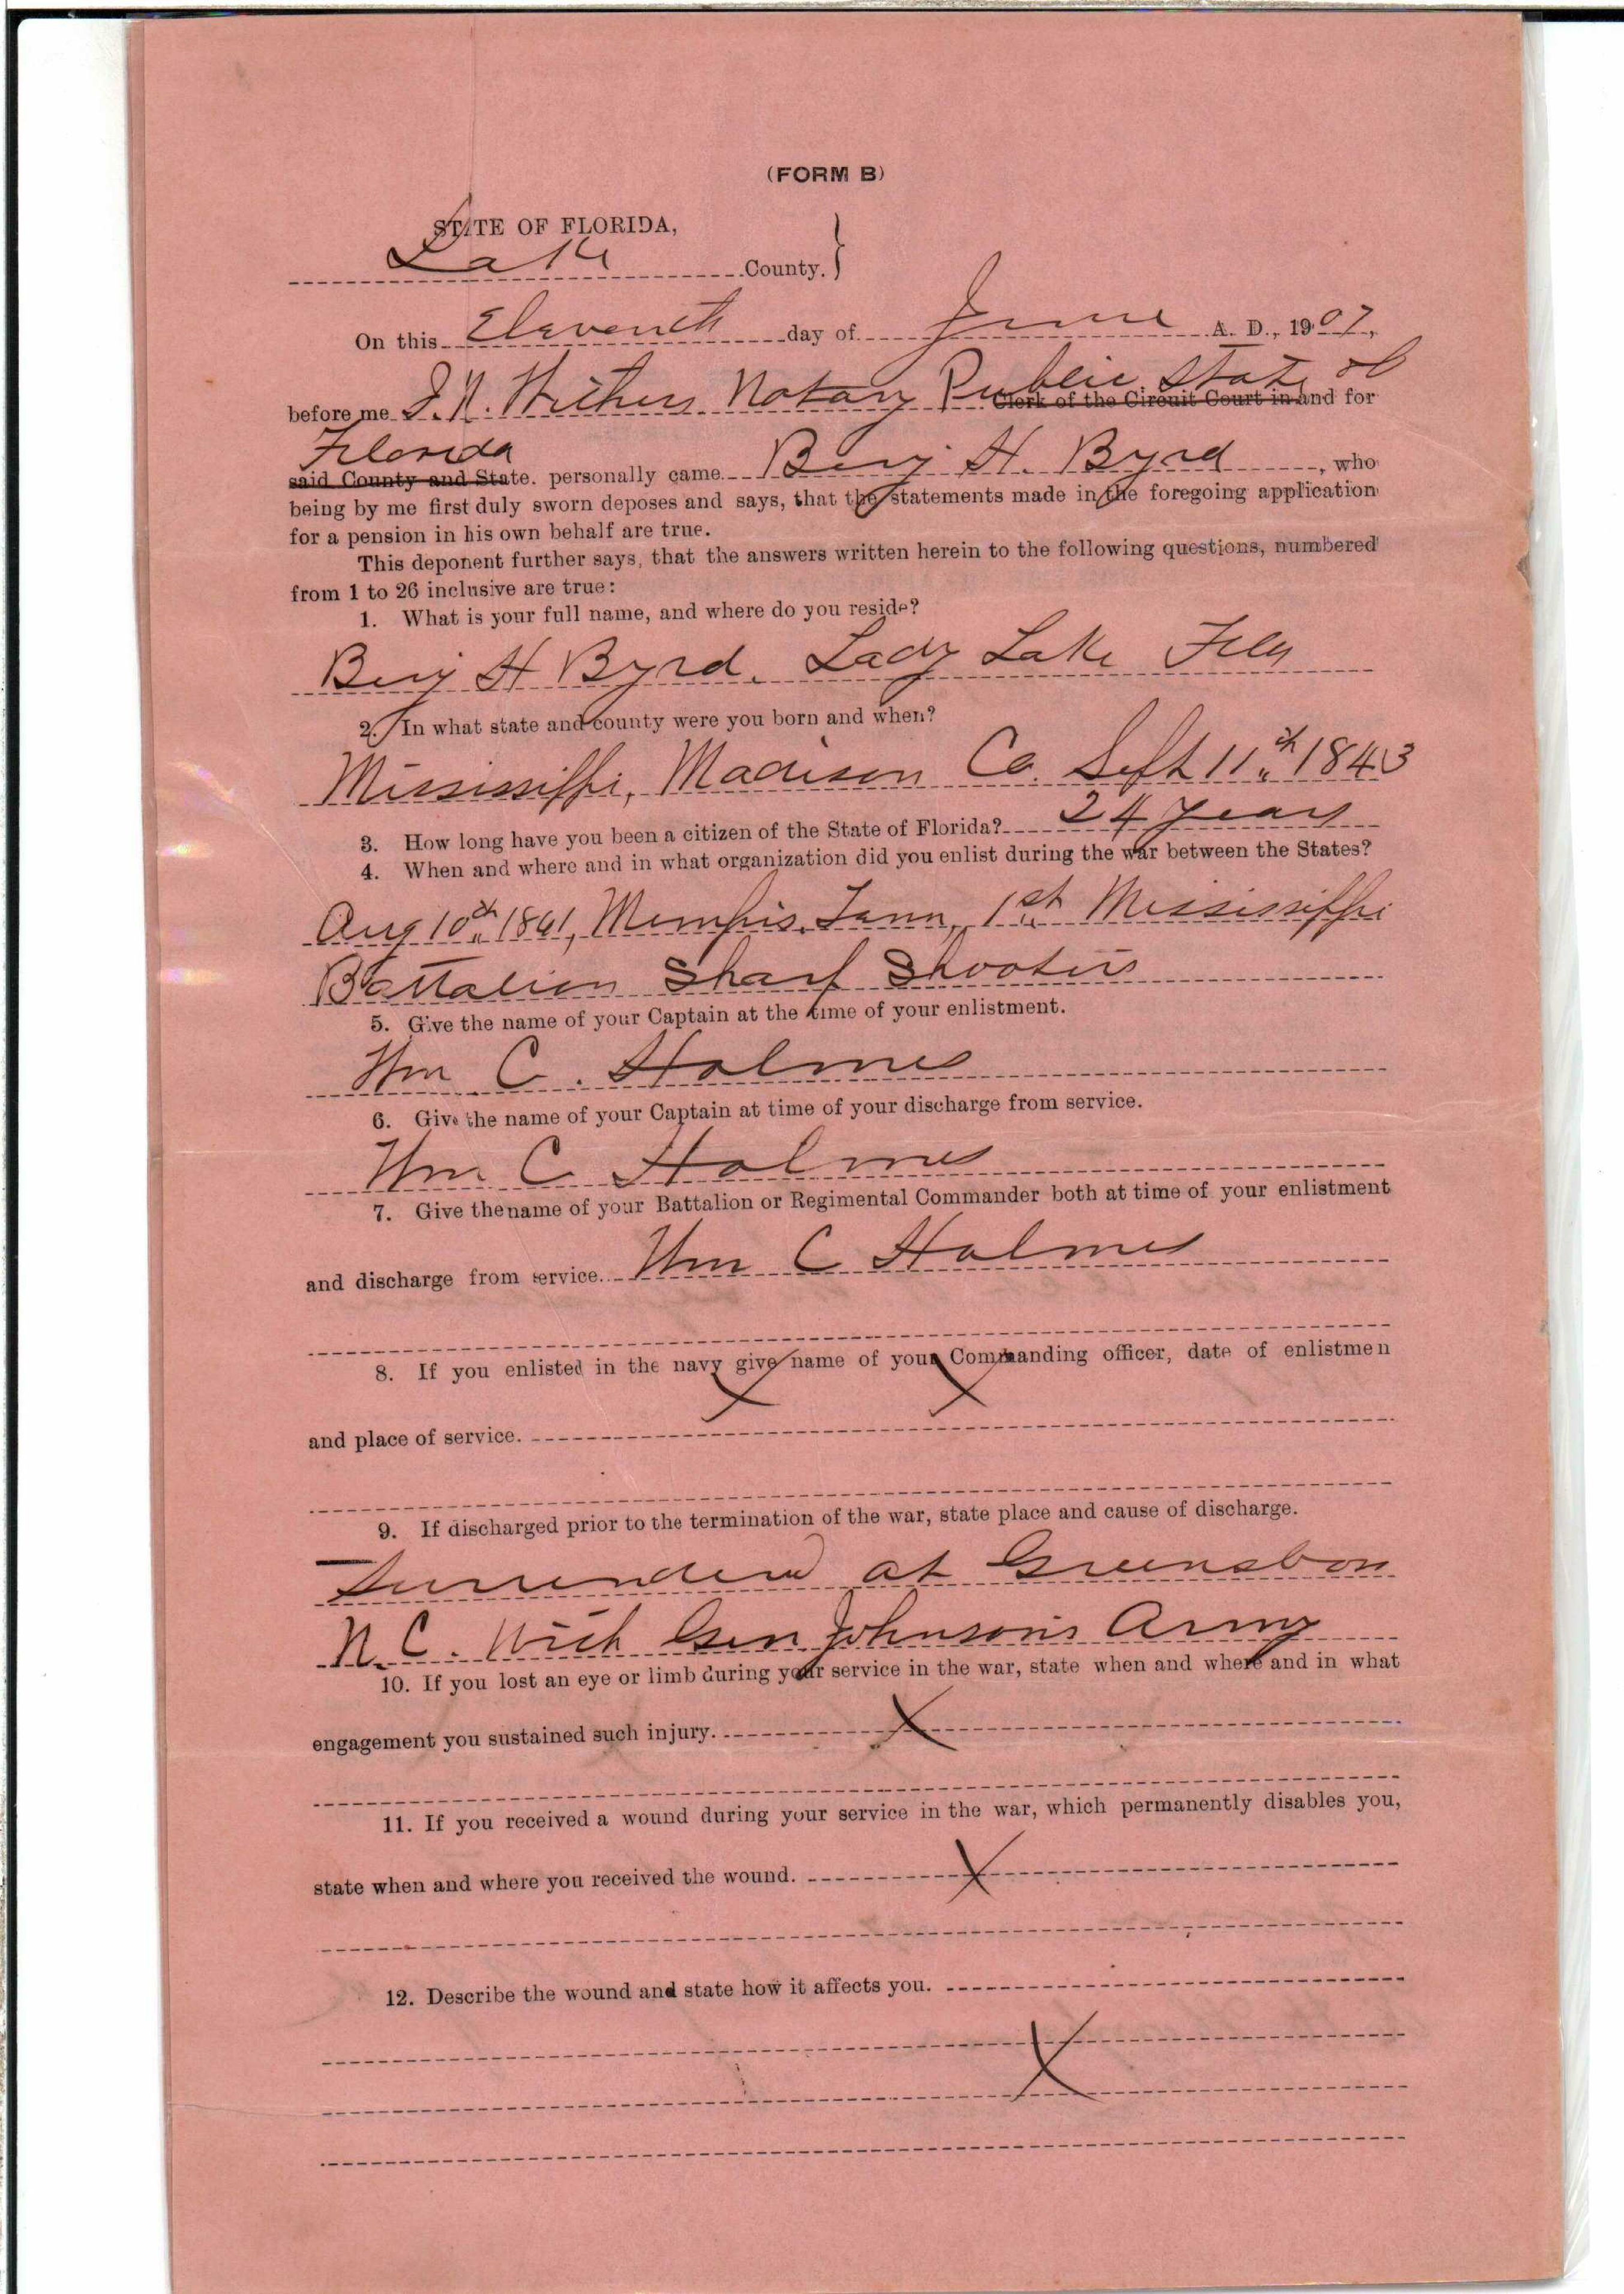 (FORM B)
STATE OF FLORIDA,
Lake County.
On this Eleventh day of June A. D., 1907,
before me J. N. Withers Notary Public State of Clerk of the Circuit Court in and for
Florida
said County and State. personally came Benj H. Byrd, who
being by me first duly sworn deposes and says, that the statements made in the foregoing application
for a pension in his own behalf are true.
This deponent further says, that the answers written herein to the following questions, numbered
from 1 to 26 inclusive are true:
1. What is your full name, and where do you reside?
Benj H Byrd. Lady Lake Fla
2. In what state and county were you born and when?
Mississippi, Madison Co. Sept 11th 1843
3. How long have you been a citizen of the State of Florida? 24 years
4. When and where and in what organization did you enlist during the war between the States?
Aug 10th 1861, Memphis, Tenn, 1st Mississippi
Battalion Sharp Shooters
5. Give the name of your Captain at the time of your enlistment.
Wm C. Holmes
6. Give the name of your Captain at time of your discharge from service.
Wm C Holmes
7. Give the name of your Battalion or Regimental Commander both at time of your enlistment
and discharge from service. Wm C Holmes
8. If you enlisted in the navy give name of your Commanding officer, date of enlistmen
X X
and place of service.
9. If discharged prior to the termination of the war, state place and cause of discharge.
Surrendered at Greensboro
N.C. With Gen Johnson's Army
10. If you lost an eye or limb during your service in the war, state when and where and in what
engagement you sustained such injury. X
11. If you received a wound during your service in the war, which permanently disables you,
state when and where you received the wound. X
12. Describe the wound and state how it affects you.
X